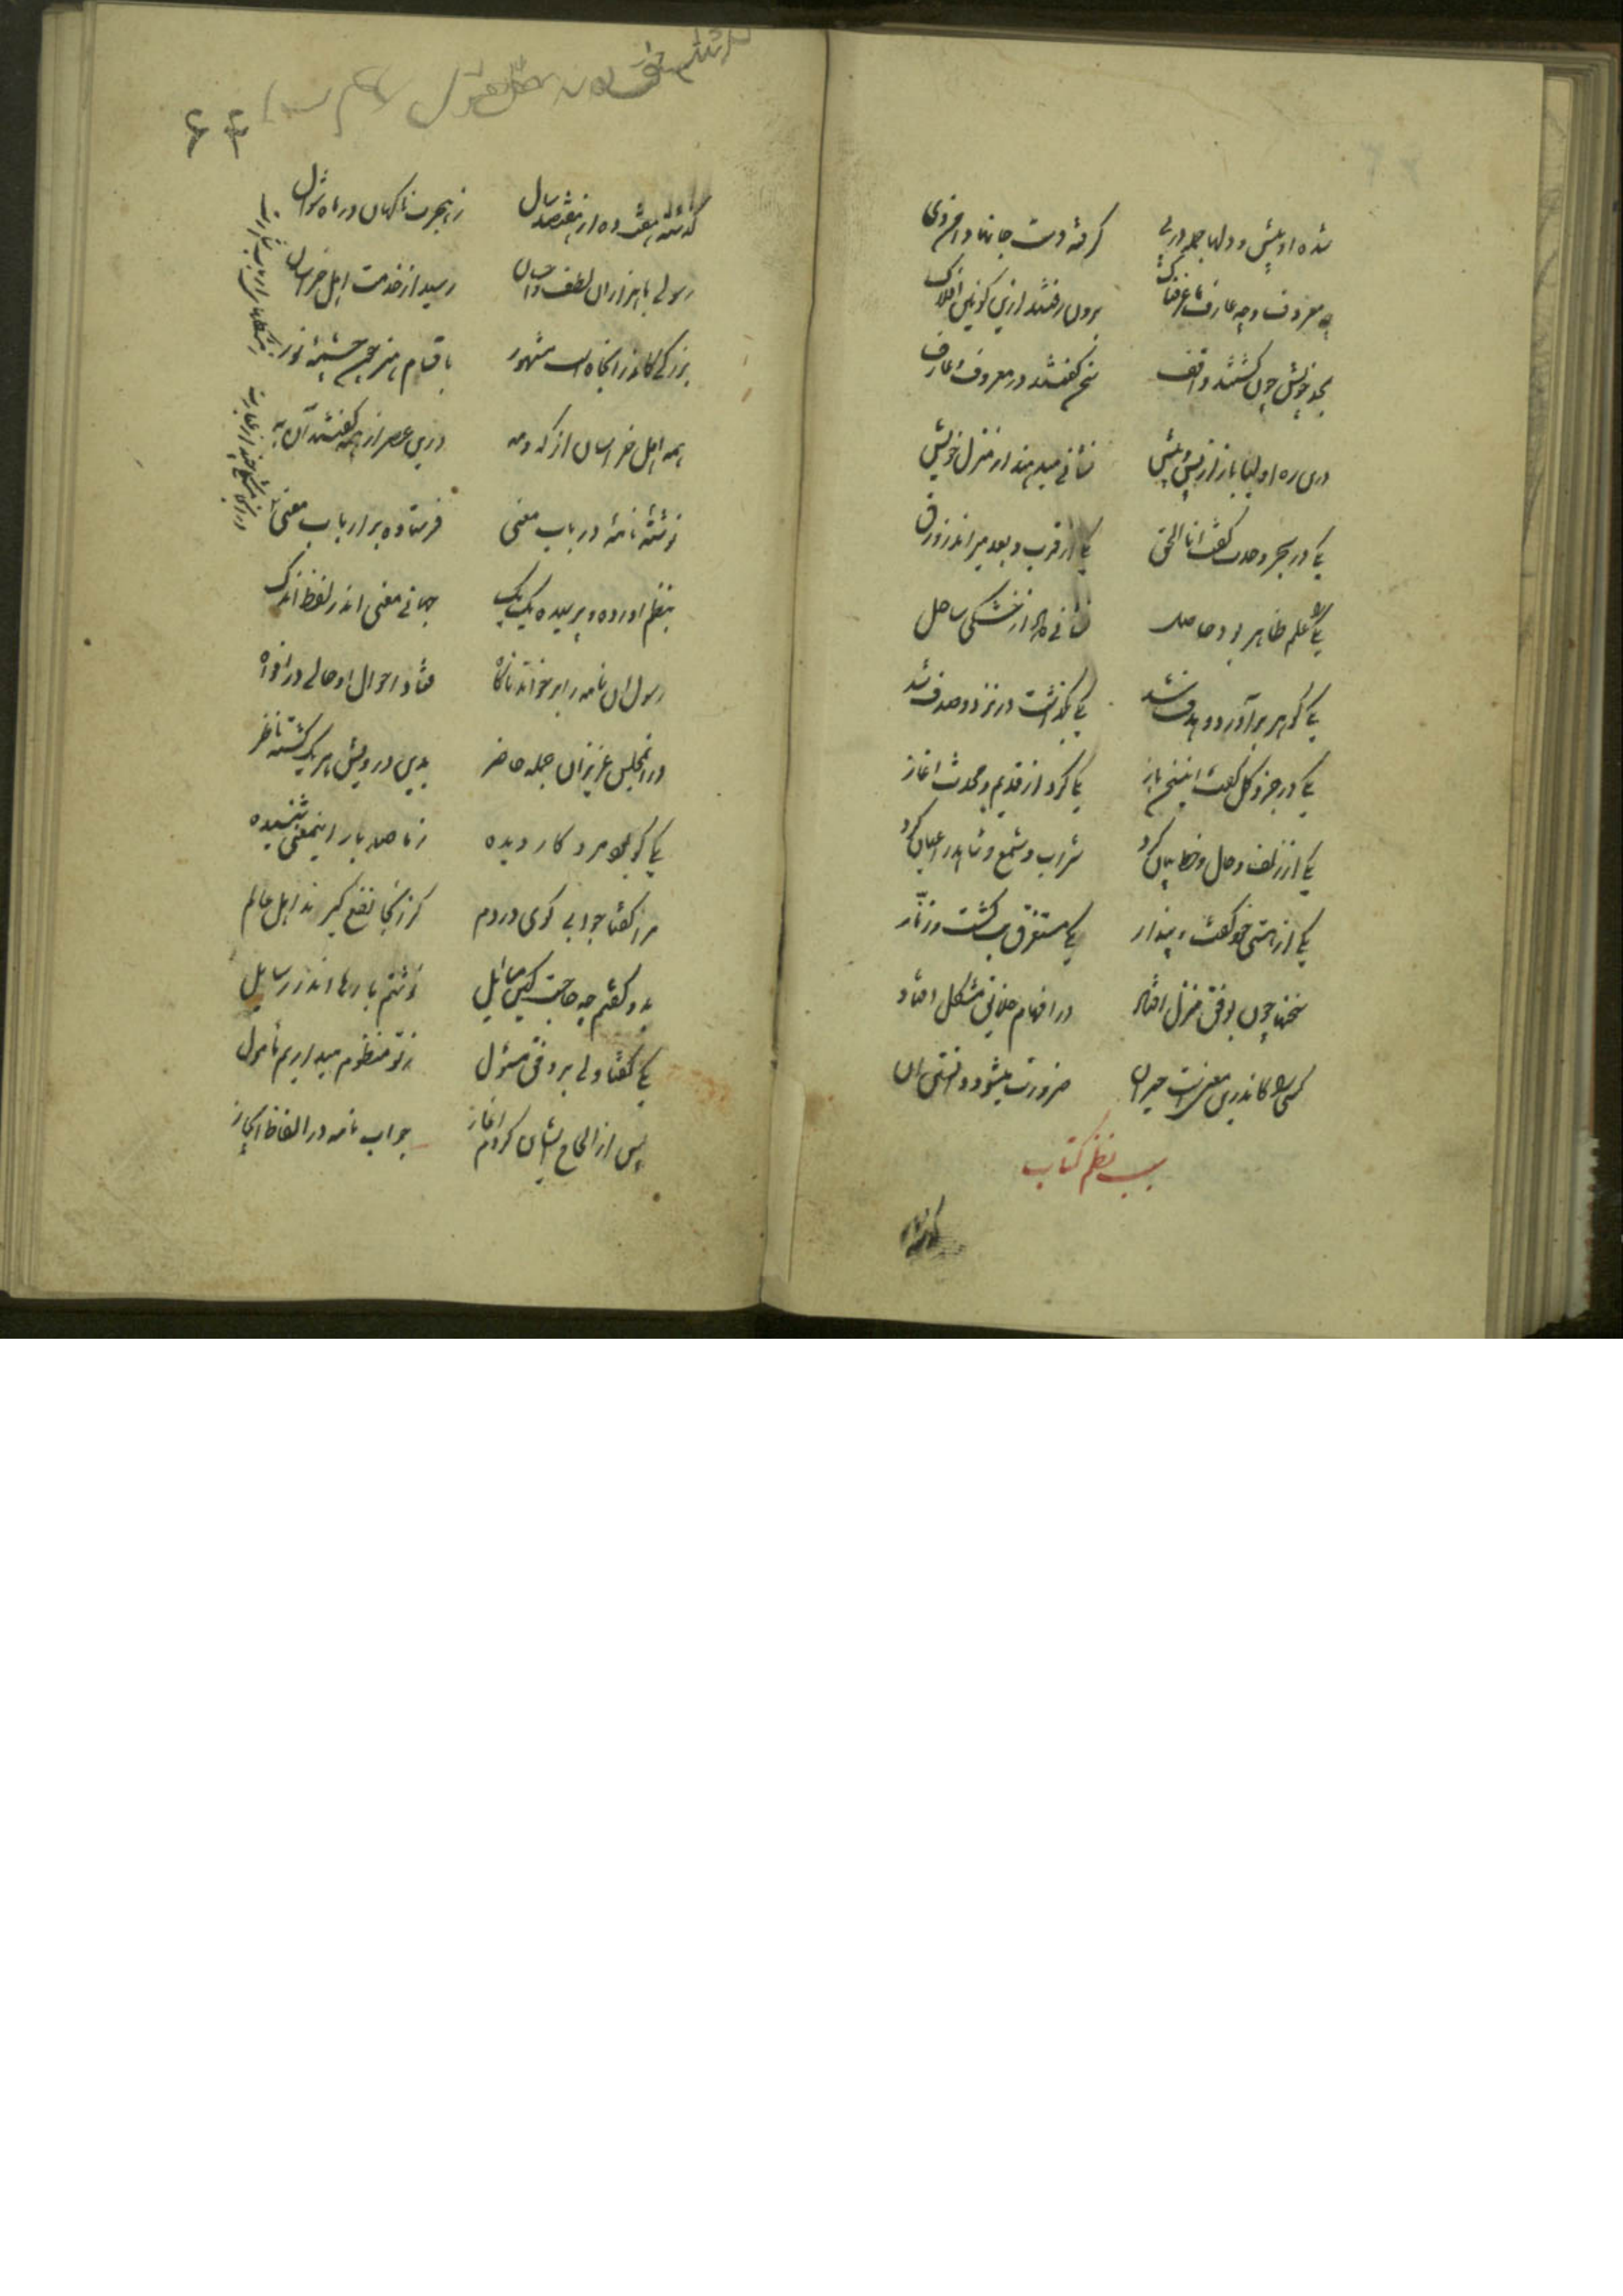 شده او پیش و دلها جمله در پی گرفته دست جانها دامن وی
چه معروف و چه عارف تا عرفناک برون رفتند ازین کونین افلاک
بحد خویش چون گشتند واقف سخن گفتند در معروف و عارف
درین ره اولیا باز از پس و پیش نشانی میدهند از منزل خویش
یکی در بحر وحدت گفت انا الحق یکی از قرب و بعد و سیر اندر زورق
یکی را علم ظاهر بود حاصل نشانی داد از خشکی ساحل
یکی گوهر برآورد و هدف شد یکی بگذاشت در نزد و صدف شد
یکی در جزو و کل گفت این سخن باز یکی کرد از قدیم و محدث اغاز
یکی از زلف و خال و خط بیان کرد شراب و شمع و شاهد را عیان کرد
یکی از هستی خود گفت و پندار یکی مستغرق بت گشت و زنار
سخنها چون بوفق منزل افتاد در افهام خلایق مشکل افتاد
کسی را کاندرین معنیست حیران ضرورت میشود دانستن ان
سبب نظم کتاب
گذشته
گذشته هفت و ده از هفتصد سال ز هجرت ناگهان در ماه شوال
رسولی با هزاران لطف و احسان رسید از خدمت اهل خراسان
بزرگی کاندر انجا هست مشهور باقسام هنر چون چشمه نور
همه اهل خراسان از که و مه درین عصر از همه گفتند آن به
نوشته نامهٔ در باب معنی فرستاده بر ارباب معنی
بنظم اورده و پرسیده یک یک جهانی معنی اندر لفظ اندک
رسول ان نامه را بر خواند ناگاه فتاد احوال او حالی در افواه
در ان مجلس عزیزان جمله حاضر بدین درویش هر یک گشته ناظر
یکی کو بود مرد کار دیده ز ما صد بار این معنی شنیده
مرا گفتا جوابی گوی در دم کز انجا نفع گیرند اهل عالم
بدو گفتم چه حاجت کین مسایل نوشتم بارها اندر رسایل
یکی گفتا ولی بر وفق مسئول ز تو منظوم میداریم مأمول
پس از الحاح ایشان کردم اغاز جواب نامه در الفاظ ایجاز